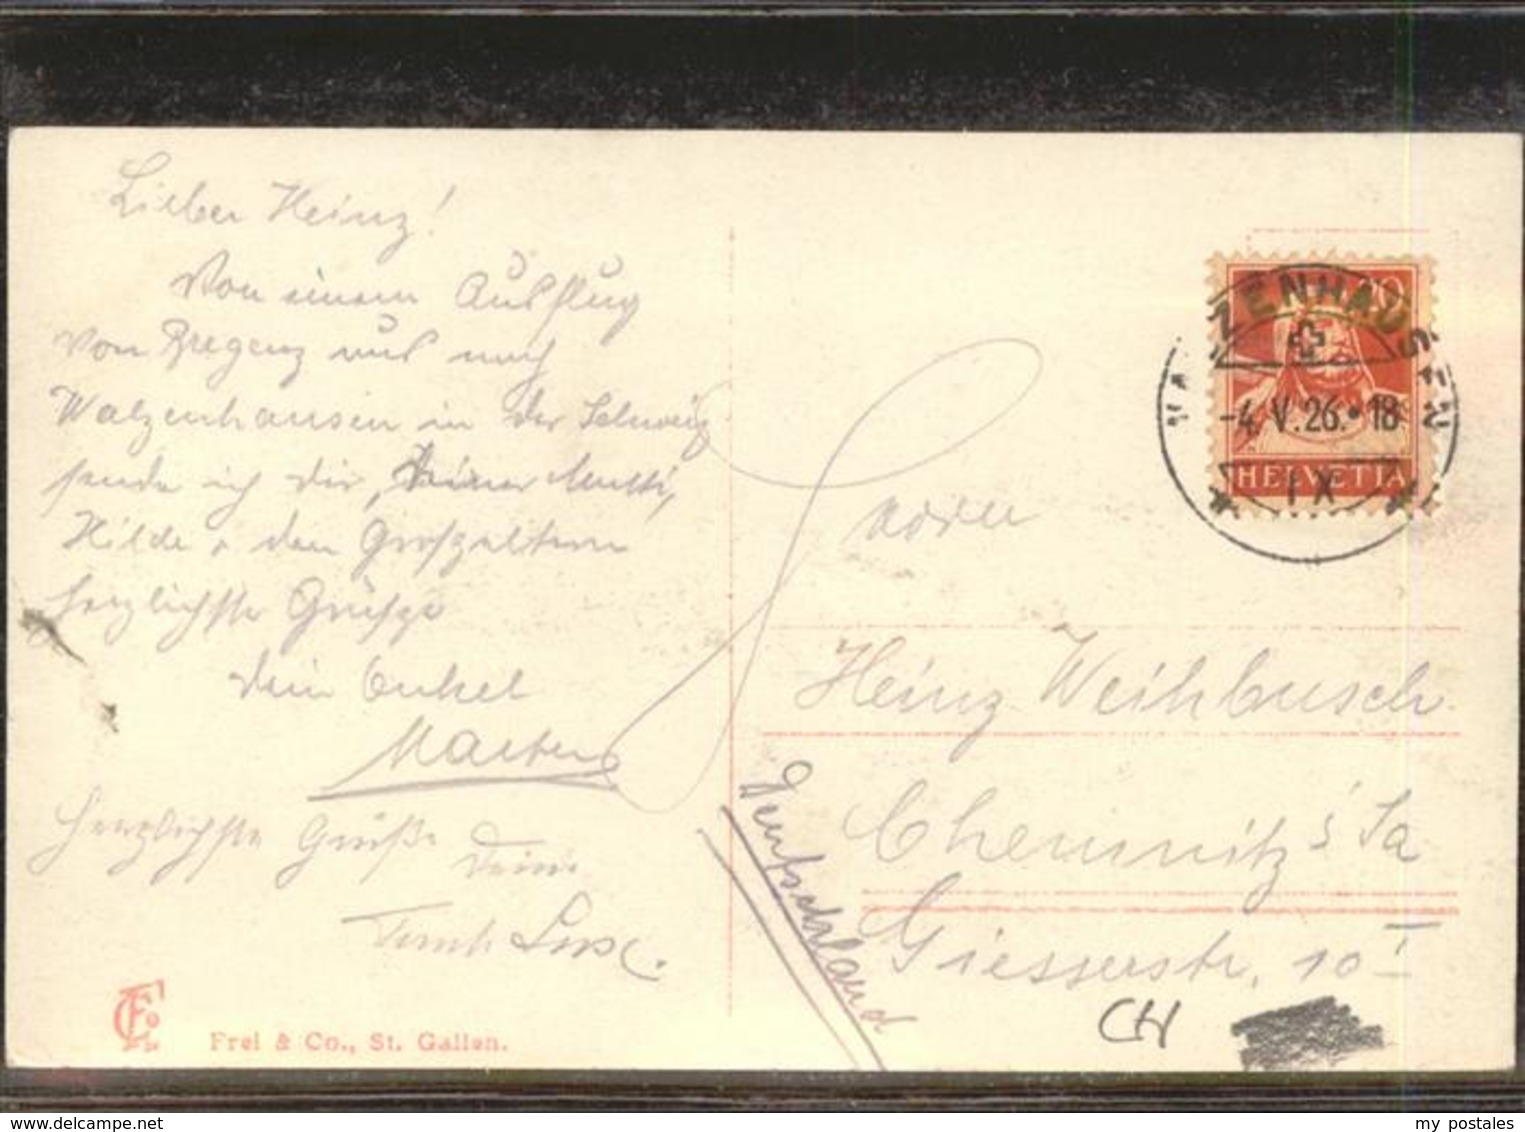 Lieber Heinz!
Von einem Ausflug
von Bregenz aus nach
Walzenhausen in der Schweiz
sende ich dir, Deiner Mutti,
Hilde u. den Großeltern
herzlichste Grüsse
Dein Onkel
Marten
Herzlichste Grüße
Deine
Tante
Frei & Co., St. Gallen.
20
WALZENHAUSEN
-4.V.26.•18
HELVETIA
Herrn
Heinz Weihbusch
Chemnitz i/Sa
Giesserstr. 10 I
Deutschland
CH
www.delcampe.net
my postales